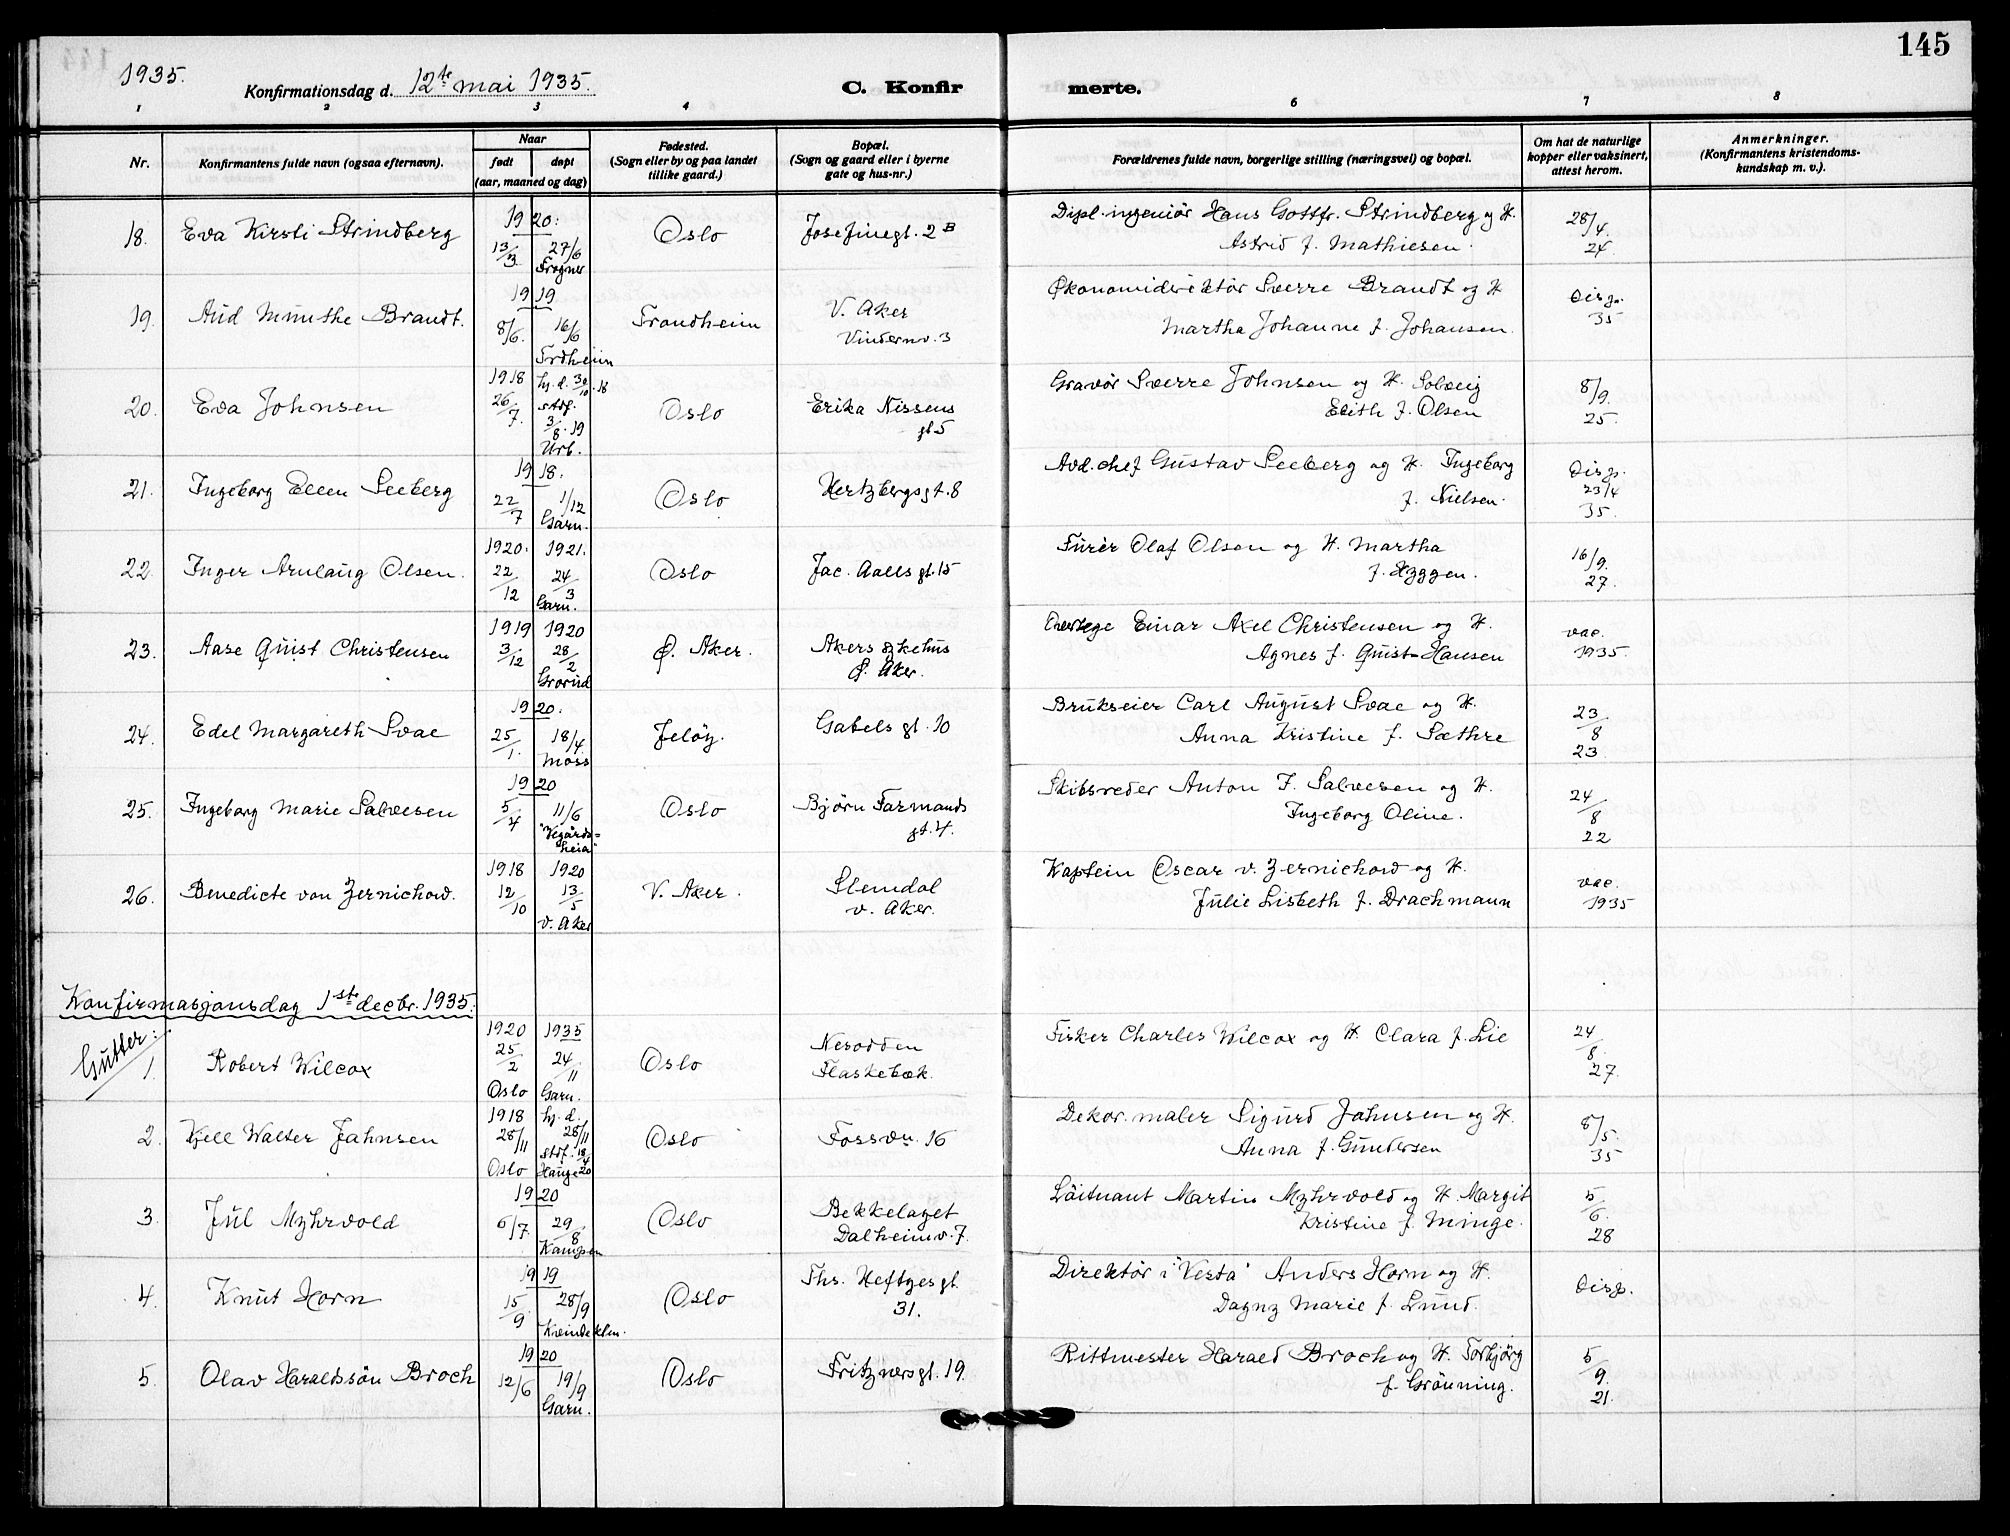 145
1935.
Konfirmationsdag d. 12te mai 1935.
C. Konfirmerte.
1 2 3 4 6 7 8
Nr.
Konfirmantens fulde navn (ogsaa efternavn).
Naar
født
døpt
(aar, maaned og dag)
Fødested.
(Sogn eller by og paa landet
tillike gaard.)
Bopæl.
(Sogn og gaard eller i byerne
gate og hus-nr.)
Forældrenes fulde navn, borgerlige stilling (næringsvei) og bopæl.
Om hat de naturlige
kopper eller vaksinert,
attest herom.
Anmerkninger.
(Konfirmantens kristendoms-
kundskap m. v.).
18. Eva Kirsti Strindberg
1920:
13/3 27/6
Frogner
Oslo
Josefinegt. 2B
Dipl.ingeniör Hans Gottfr. Strindberg og H.
Astrid f. Mathiesen.
28/4.
24
19. Aud Munthe Brandt.
1919
8/6. 16/6
Trdheim
Trondheim
V. Aker
Vindernv. 3
Økonomidirektör Sverre Brandt og H
Martha Johanne f. Johansen.
Disp.
35
20. Eva Johnsen
1918
26/7.
hj. d. 30/10.18
stdf.
3/8.19
Urb.
Oslo
Erika Nissens
gt 5
Gravör Sverre Johnsen og H. Solveig
Edith f. Olsen
8/9.
25.
21. Ingeborg Ellen Seeberg
1918:
22/7 1/12
Garn.
Oslo
Hertzbergsgt. 8
Avd.chef Gustav Seeberg og H. Ingeborg
f. Nielsen.
Disp.
23/4
35.
22. Inger Arnlaug Olsen.
1920. 1921.
22/12 24/3
Garn.
Oslo
Jac. Aalls gt. 15
Furér Olaf Olsen og H. Martha
f. Hyggen.
16/9.
27.
23. Aase Quist Christensen
1919 1920
3/12 28/2
Grorud
Ø. Aker.
Akers sykehus
Ø. Aker.
Overlege Einar Axel Christensen og H.
Agnes f. Quist-Hansen
vac.
1935.
24. Edel Margareth Svae
1920:
25/1. 18/4.
Moss
Jelöy.
Gabels gt. 10
Brukseier Carl August Svae og H.
Anna Kristine f. Sæthre
23/8
23
25. Ingeborg Marie Salvesen
1920
5/4 11/6
"Vegårds=
heia"
Oslo
Björn Farmands
gt. 4.
Skibsreder Anton F. Salvesen og H.
Ingeborg Oline.
24/8
22
26. Benedicte von Zernichow.
1918 1920
12/10 13/5
V. Aker
V. Aker.
Slemdal
v. Aker.
Kaptein Oscar v. Zernichow og H.
Julie Lisbeth f. Drachmann
vac.
1935
Konfirmasjonsdag 1ste decbr. 1935.
Gutter:
1. Robert Wilcox
1920 1935
25/2 24/11
Oslo Garn.
Oslo
Nesodden
Flaskebæk.
Fisker Charles Wilcox og H. Clara f. Lie
24/8.
27.
2. Kjell Walter Jahnsen
1918 hj. d.
28/11 28/11
stdf. 18/4
Oslo Hauge 20
Oslo
Fossvn. 16
Dekor. maler Sigurd Jahnsen og H.
Anna f. Gundersen
8/5.
35
3. Jul Myhrvold
1920
6/7 29/8
Kampen
Oslo
Bekkelaget
Dalheimv. 7.
Löitnant Martin Myhrvold og H. Margit
Kristine f. Minge.
5/6.
28
4. Knut Horn
1919
15/9 28/9
Oslo
Ths. Heftyes gt.
31.
Direktör i "Vesta" Anders Horn og H.
Dagny Marie f. Lund.
Disp.
5. Olav Haraldssön Broch
1920
12/6 19/9
Garn.
Oslo
Fritznersgt. 19.
Rittmester Harald Broch og H. Torbjörg
f. Grönning.
5/9.
21.